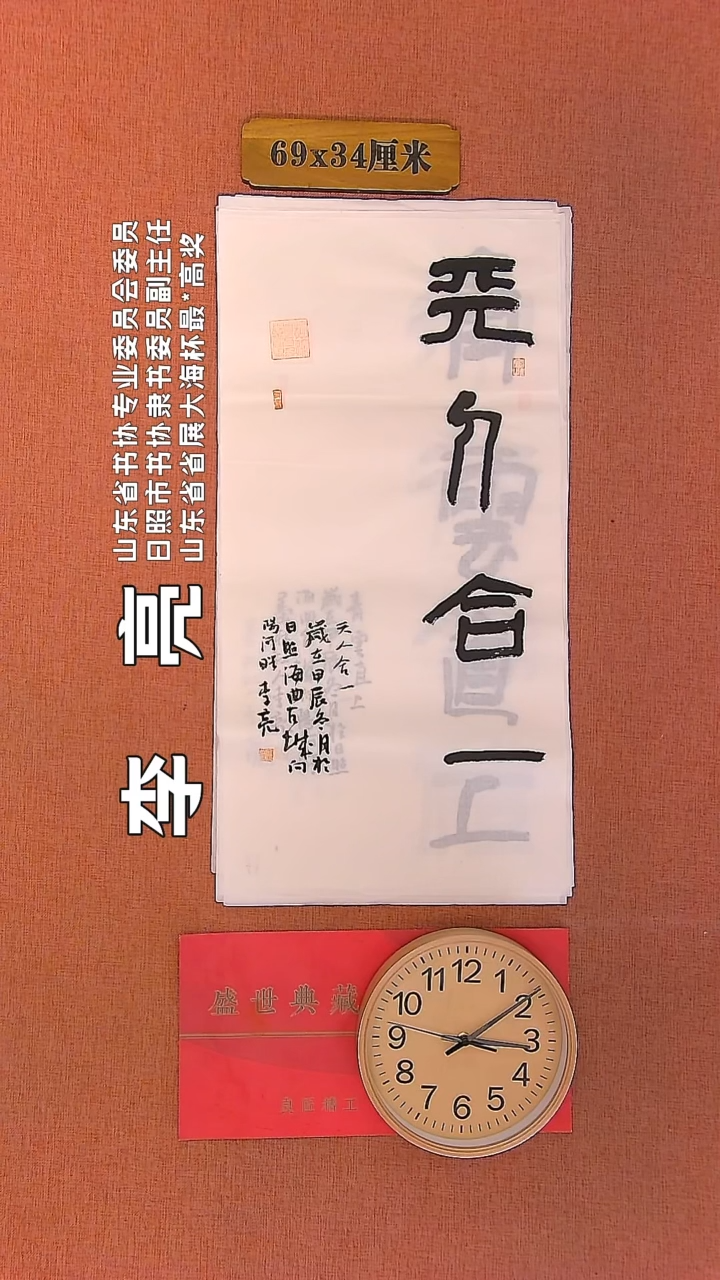 69x34厘米
天人合一
天人合一
歲在甲辰冬月於
日照海曲古城向
陽河畔 李亮
李 亮
山东省书协专业委员会委员
日照市书协隶书委员副主任
山东省省展大海杯最*高奖
盛世典藏
12
1
2
3
4
5
6
7
8
9
10
11